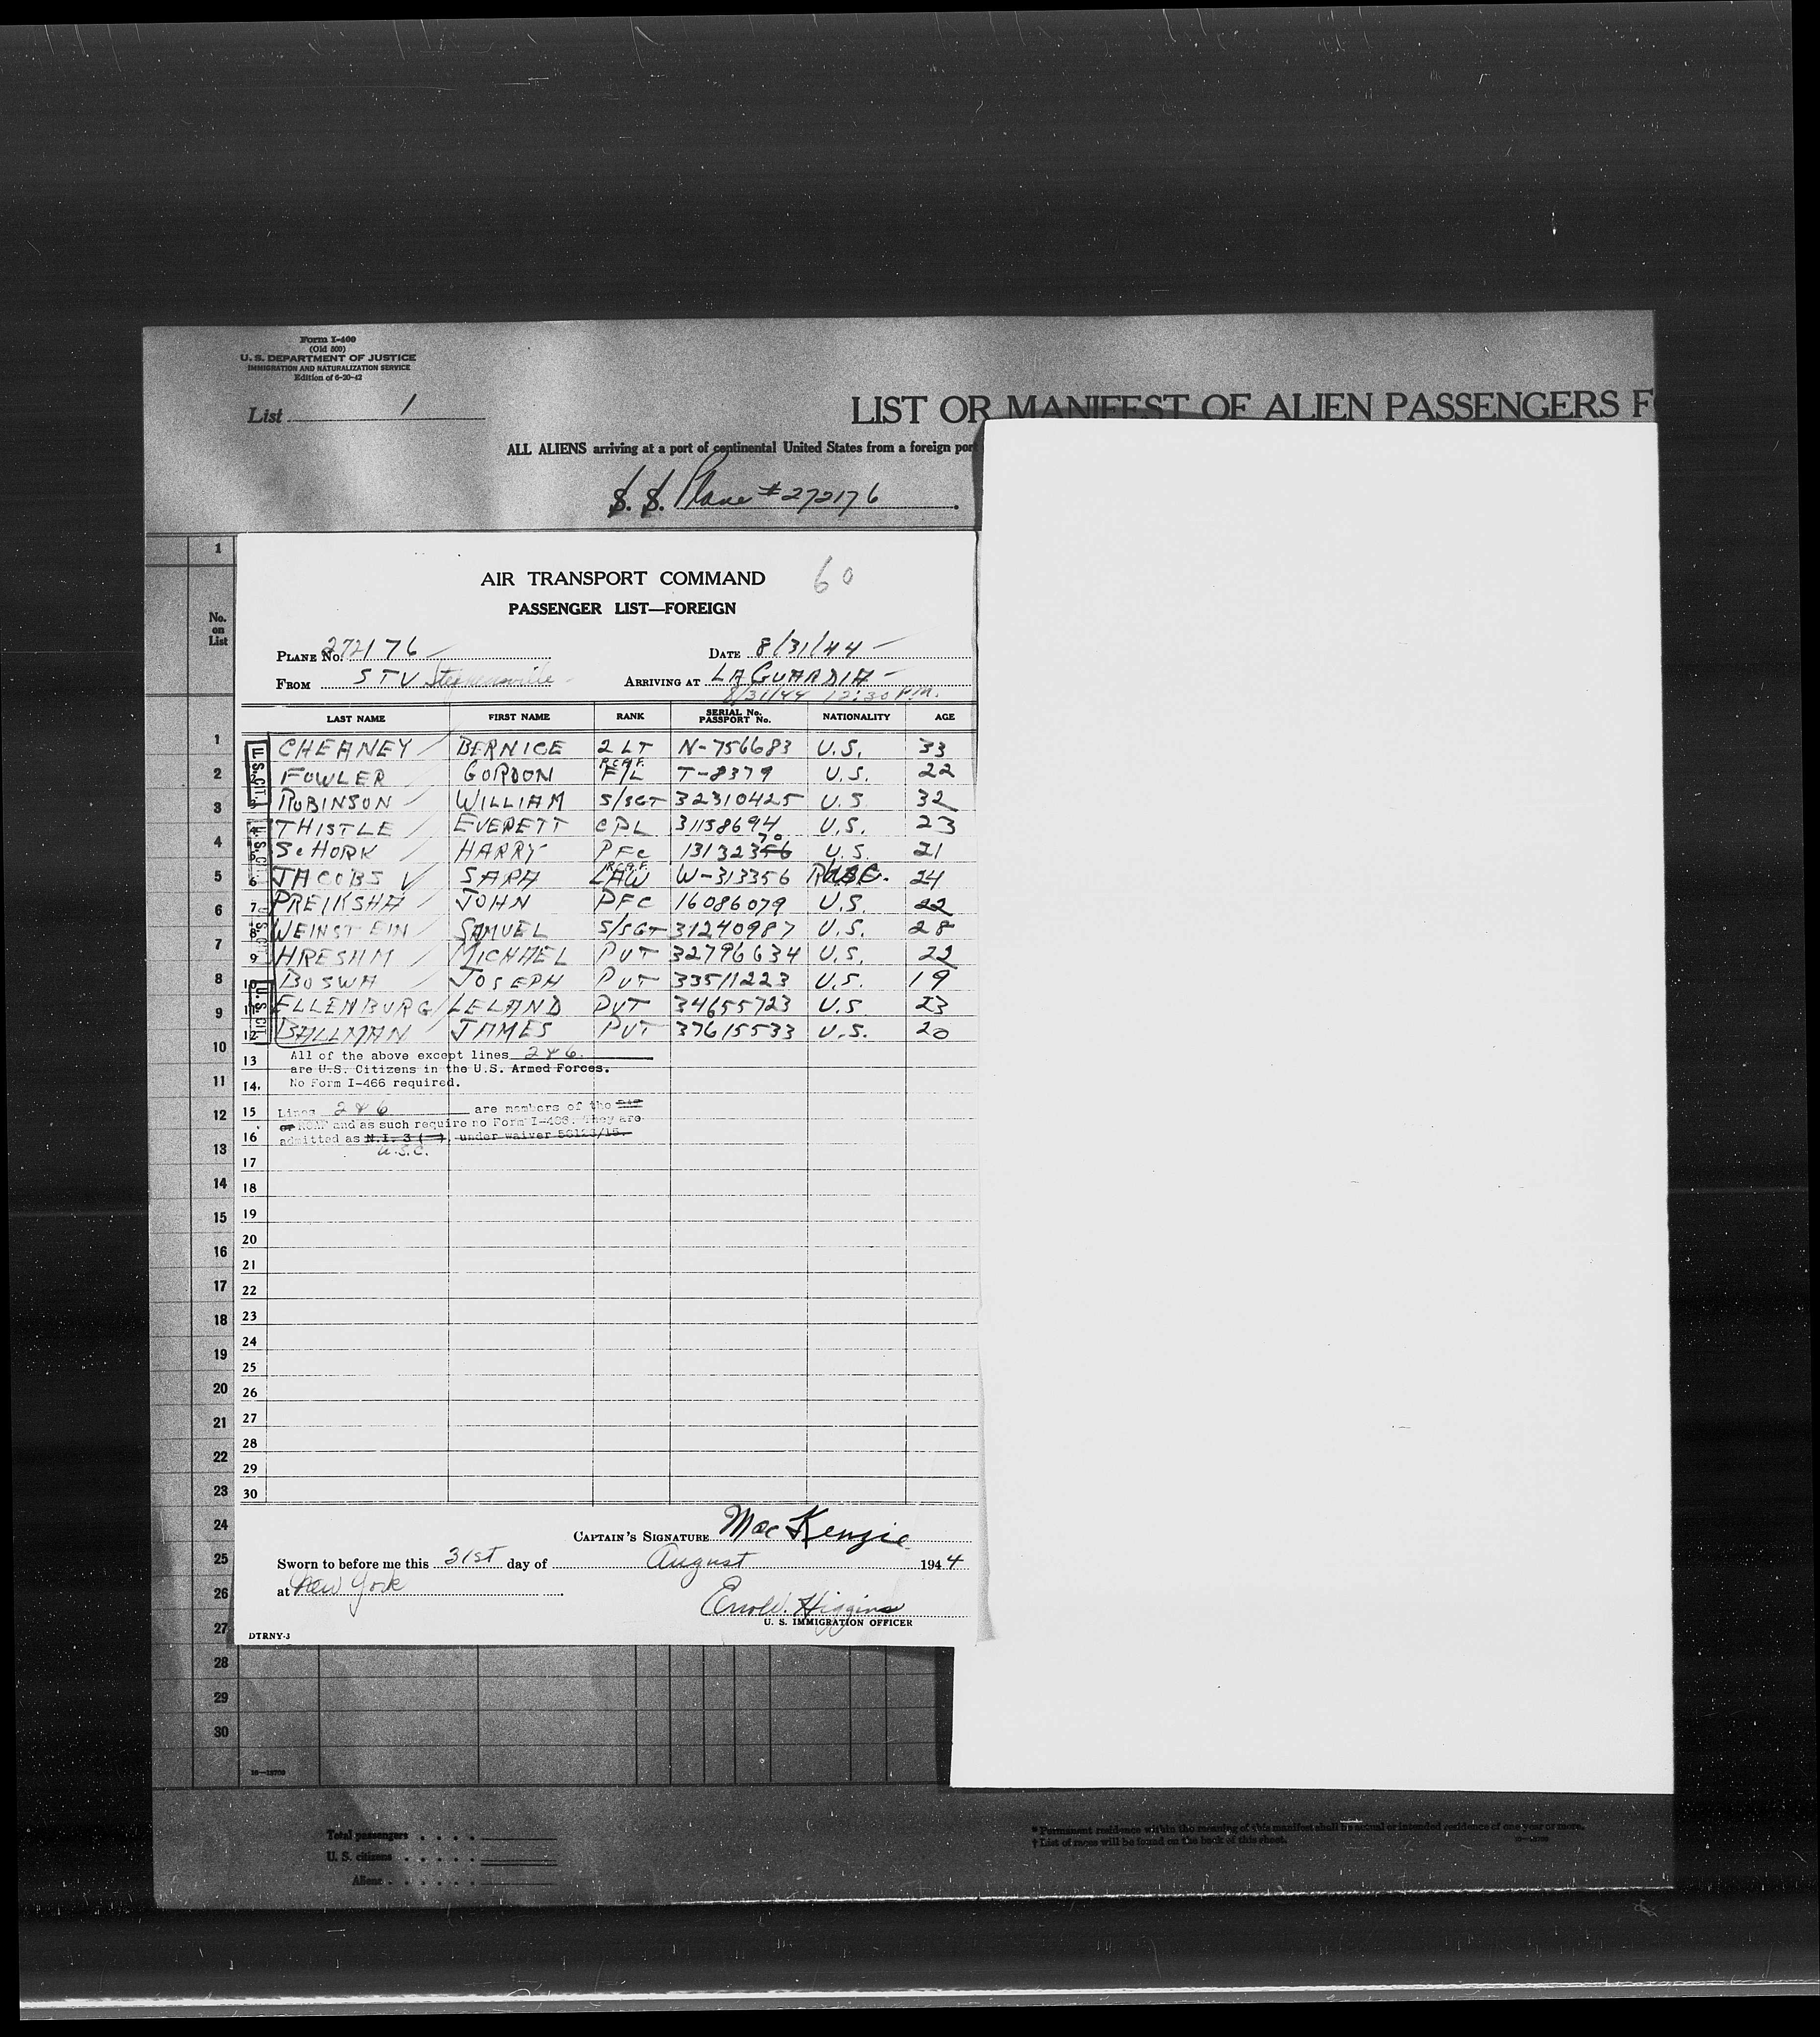 Form I-400
(Old 500)
U. S. DEPARTMENT OF JUSTICE
IMMIGRATION AND NATURALIZATION SERVICE
Edition of 6-20-42
List 1
LIST OR MANIFEST OF ALIEN PASSENGERS F
ALL ALIENS arriving at a port of continental United States from a foreign port
S. S. Plane #272176
AIR TRANSPORT COMMAND 60
PASSENGER LIST—FOREIGN
No. on List
PLANE No. 272176 DATE 8/31/44
FROM STV Stephenville ARRIVING AT LA GUARDIA
8/31/44 12:30 P.M.
LAST NAME FIRST NAME RANK SERIAL No. PASSPORT No. NATIONALITY AGE
1 CHEANEY BERNICE 2 LT N-756683 U.S. 33
2 FOWLER GORDON R.C.A.F. F/L T-8379 U.S. 22
3 ROBINSON WILLIAM S/SGT 32310425 U.S 32
4 THISTLE EVERETT CPL 31158694 U.S. 23
5 SCHORK HARRY PFC 13132356 70 U.S. 21
6 JACOBS SARA R.C.A.F. LAW W-313356 U.S.C. 24
7 PREIKSHA JOHN PFC 16086079 U.S. 22
8 WEINSTEIN SAMUEL S/SGT 31240987 U.S. 28
9 HRESHM MICHAEL PVT 32796634 U.S. 22
10 BOSWA JOSEPH PVT 33511223 U.S. 19
11 ELLENBURG LELAND PVT 34655723 U.S 23
12 BALLMAN JAMES PVT 37615533 U.S. 20
13 All of the above except lines 2 & 6.
are U.S. Citizens in the U.S. Armed Forces.
14 No Form I-466 required.
15 Lines 2 & 6 are members of the RAF
or RCAF and as such require no Form I-466. They are
16 admitted as N.I. 3 ( ), under waiver 56123/15.
U.S.C.
17
18
19
20
21
22
23
24
25
26
27
28
29
30
CAPTAIN'S SIGNATURE MacKenzie
Sworn to before me this 31st day of August 1944
at New York
Errol W. Higgins
U. S. IMMIGRATION OFFICER
DTRNY-3
28
29
30
16—18709
Total passengers
U. S. citizens
Aliens
* Permanent residence within the meaning of this manifest shall be actual or intended residence of one year or more.
† List of races will be found on the back of this sheet.